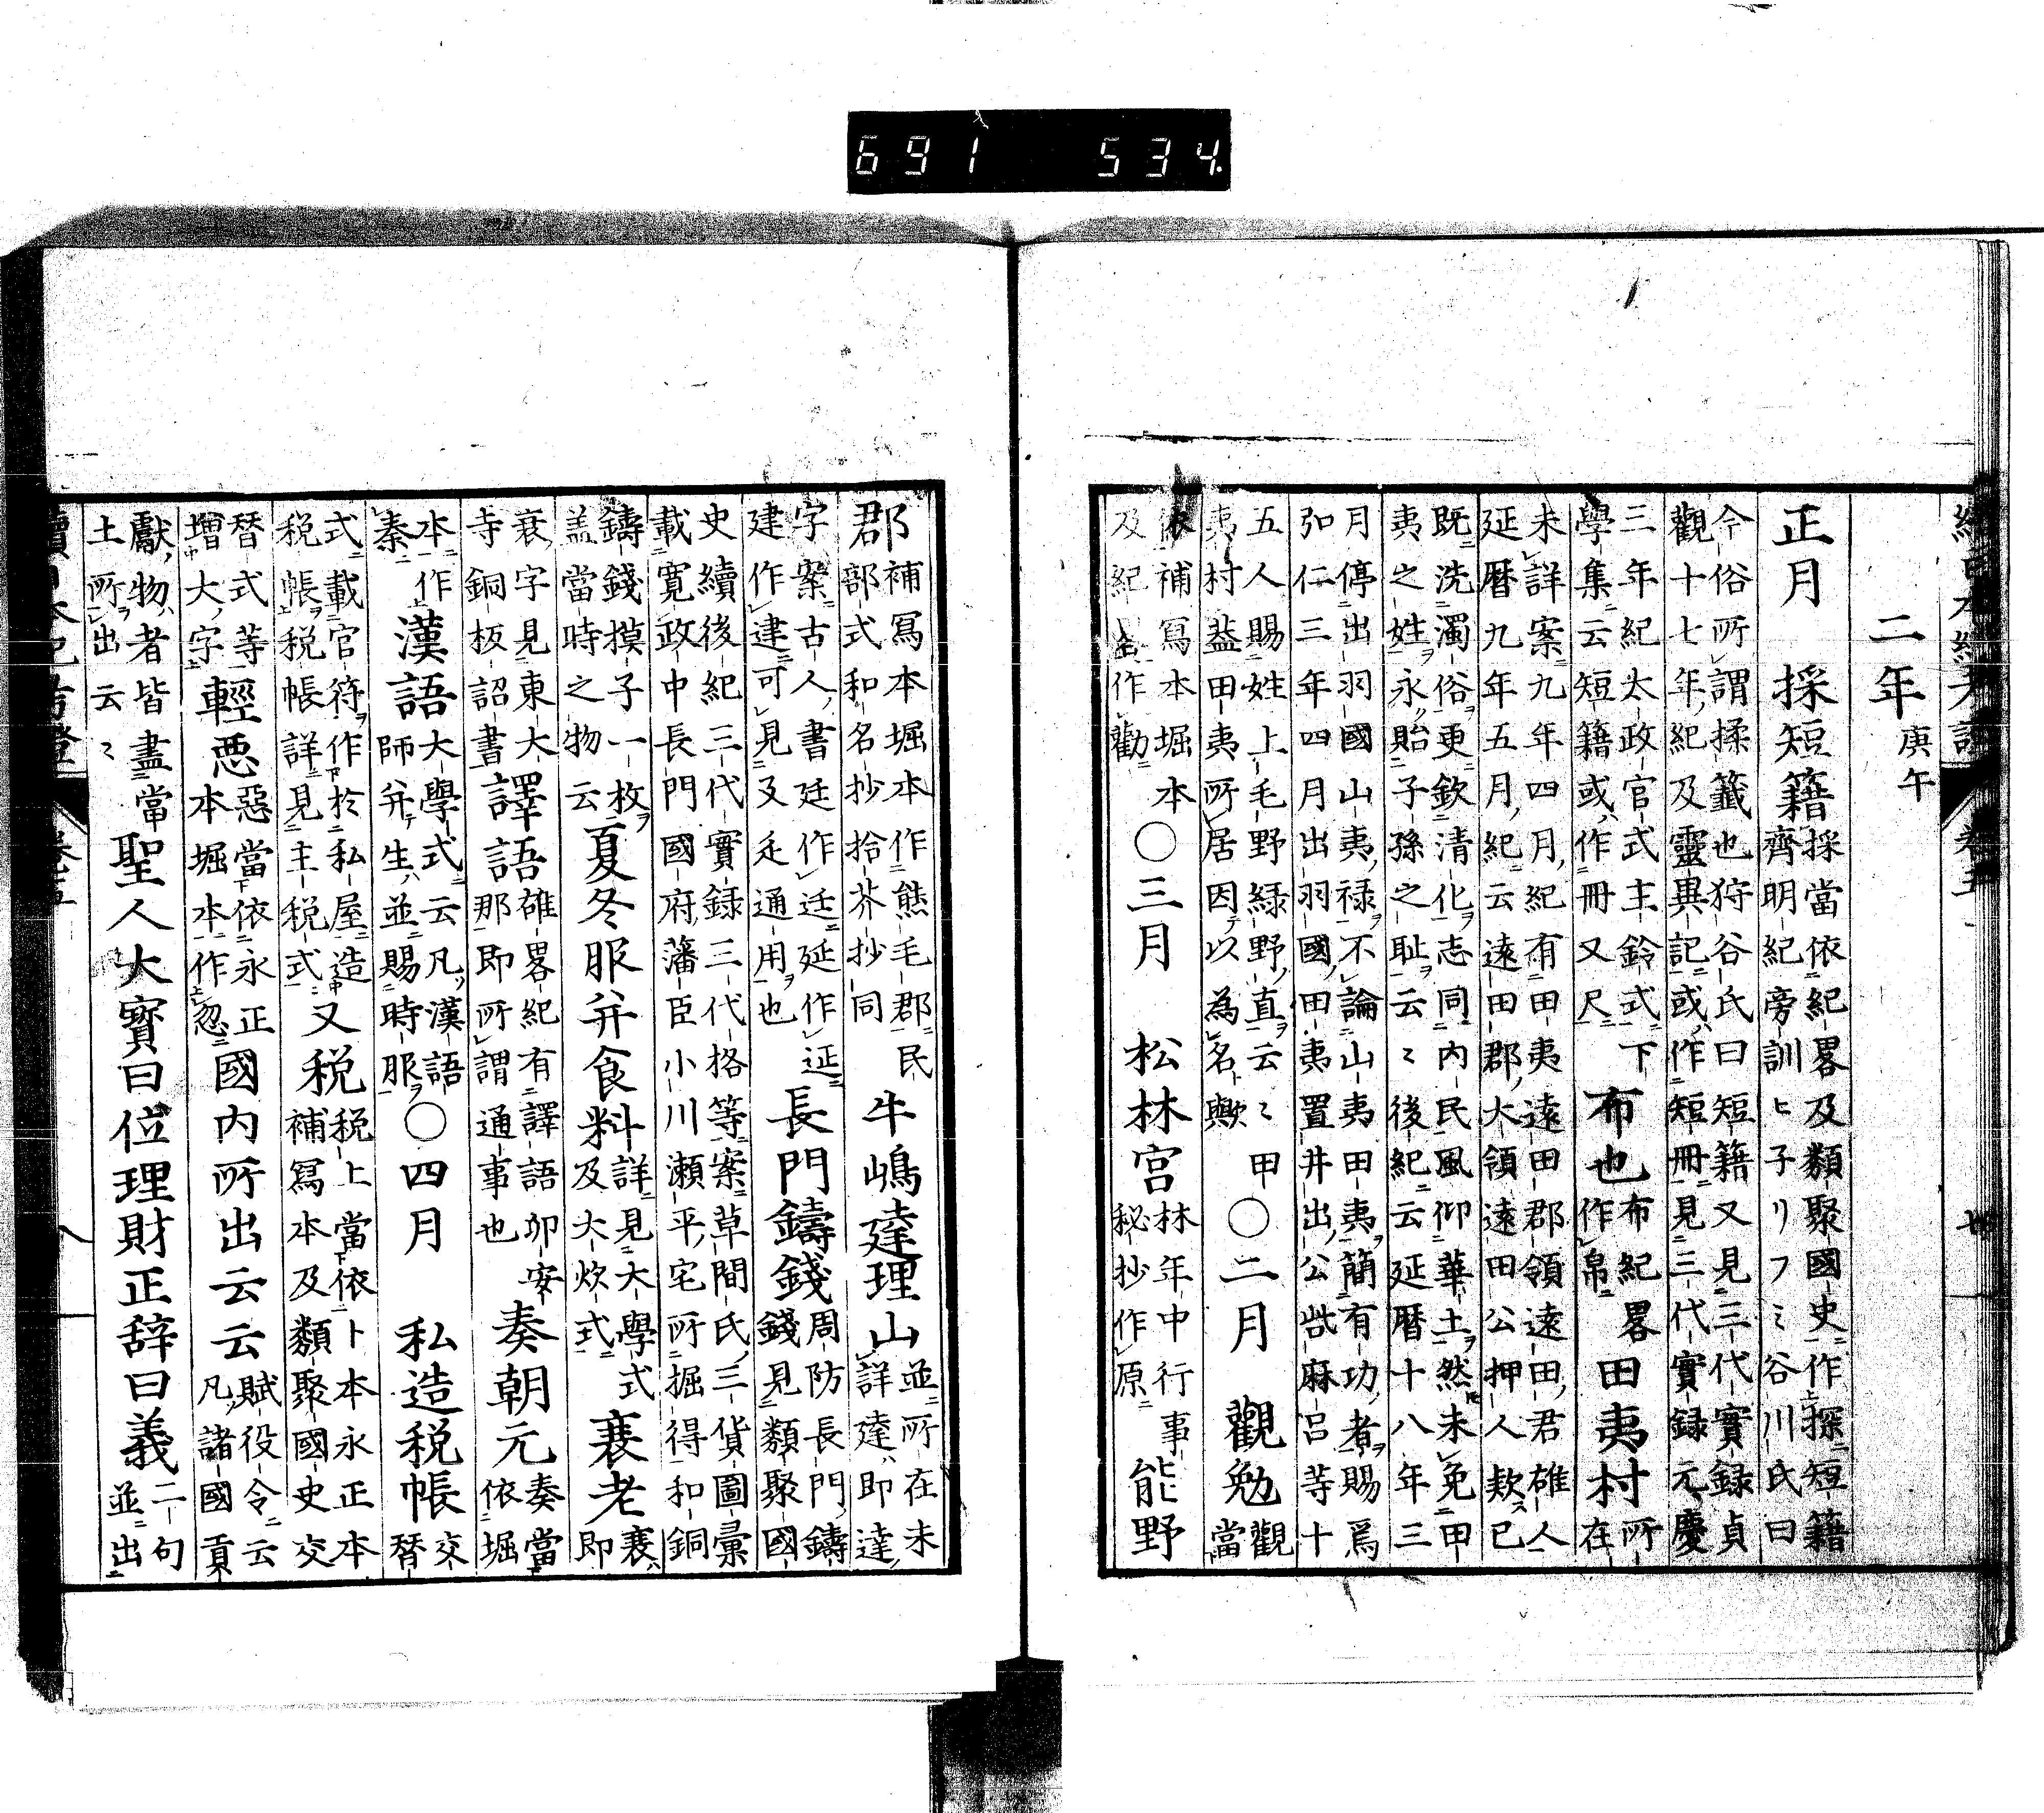 691 534
二年庚午
正月 採短籍採當依紀畧及類聚國史作探短籍
齊明紀旁訓ヒ子リフミ谷川氏曰
今俗所謂揉籤也狩谷氏曰短籍又見三代實録貞
觀十七年紀及靈異記或作短冊見三代實録元慶
三年紀太政官式主鈴式下
學集云短籍或作冊又尺 布也布紀畧作帛 田夷村所在
未詳案九年四月紀有田夷遠田郡領遠田君雄人
延暦九年五月紀云遠田郡大領遠田公押人欵已
既洗濁俗更欽清化志同内民風仰華土然未免田
夷之姓永貽子孫之耻云〻後紀云延暦十八年三
月停出羽國山夷禄不論山夷田夷簡有功者賜焉
弘仁三年四月出羽國田夷置井出公呰麻呂等十
五人賜姓上毛野緑野直云〻甲
夷村葢田夷所居因以為名歟 〇二月 觀勉觀當
依補冩本堀本
及紀畧作勸 〇三月 松林宮林年中行事
秘抄作原 能野
郡補冩本堀本作熊毛郡民
部式和名抄拾芥抄同 牛嶋達理山並所在未
詳達即達
字案古人書廷作迋延作𨒂
建作達可見及辵通用也 長門鑄錢周防長門鑄
錢見類聚國
史續後紀三代實録三代格等案草間氏三貨圖彙
載寛政中長門國府藩臣小川瀬平宅所掘得和銅
鑄錢摸子一枚
盖當時之物云 夏冬服并食料詳見大學式
及大炊式 裹老裹即
衰字見東大
寺銅板詔書 譯語雄畧紀有譯語卯安
那即所謂通事也 奏朝元奏當
依堀
本作
秦 漢語大學式云凡漢語
師并生並賜時服 〇四月 私造税帳交
替
式載官符作於私屋造
税帳税帳詳見主税式 又税税上當依卜本永正本
補冩本及類聚國史交
替式等
増大字 輕悪惡當依永正
本堀本作忽 國内所出云云賦役令云
凡諸國貢
獻物者皆盡當
土所出云〻 聖人大寳曰位理財正辞曰義二句
並出